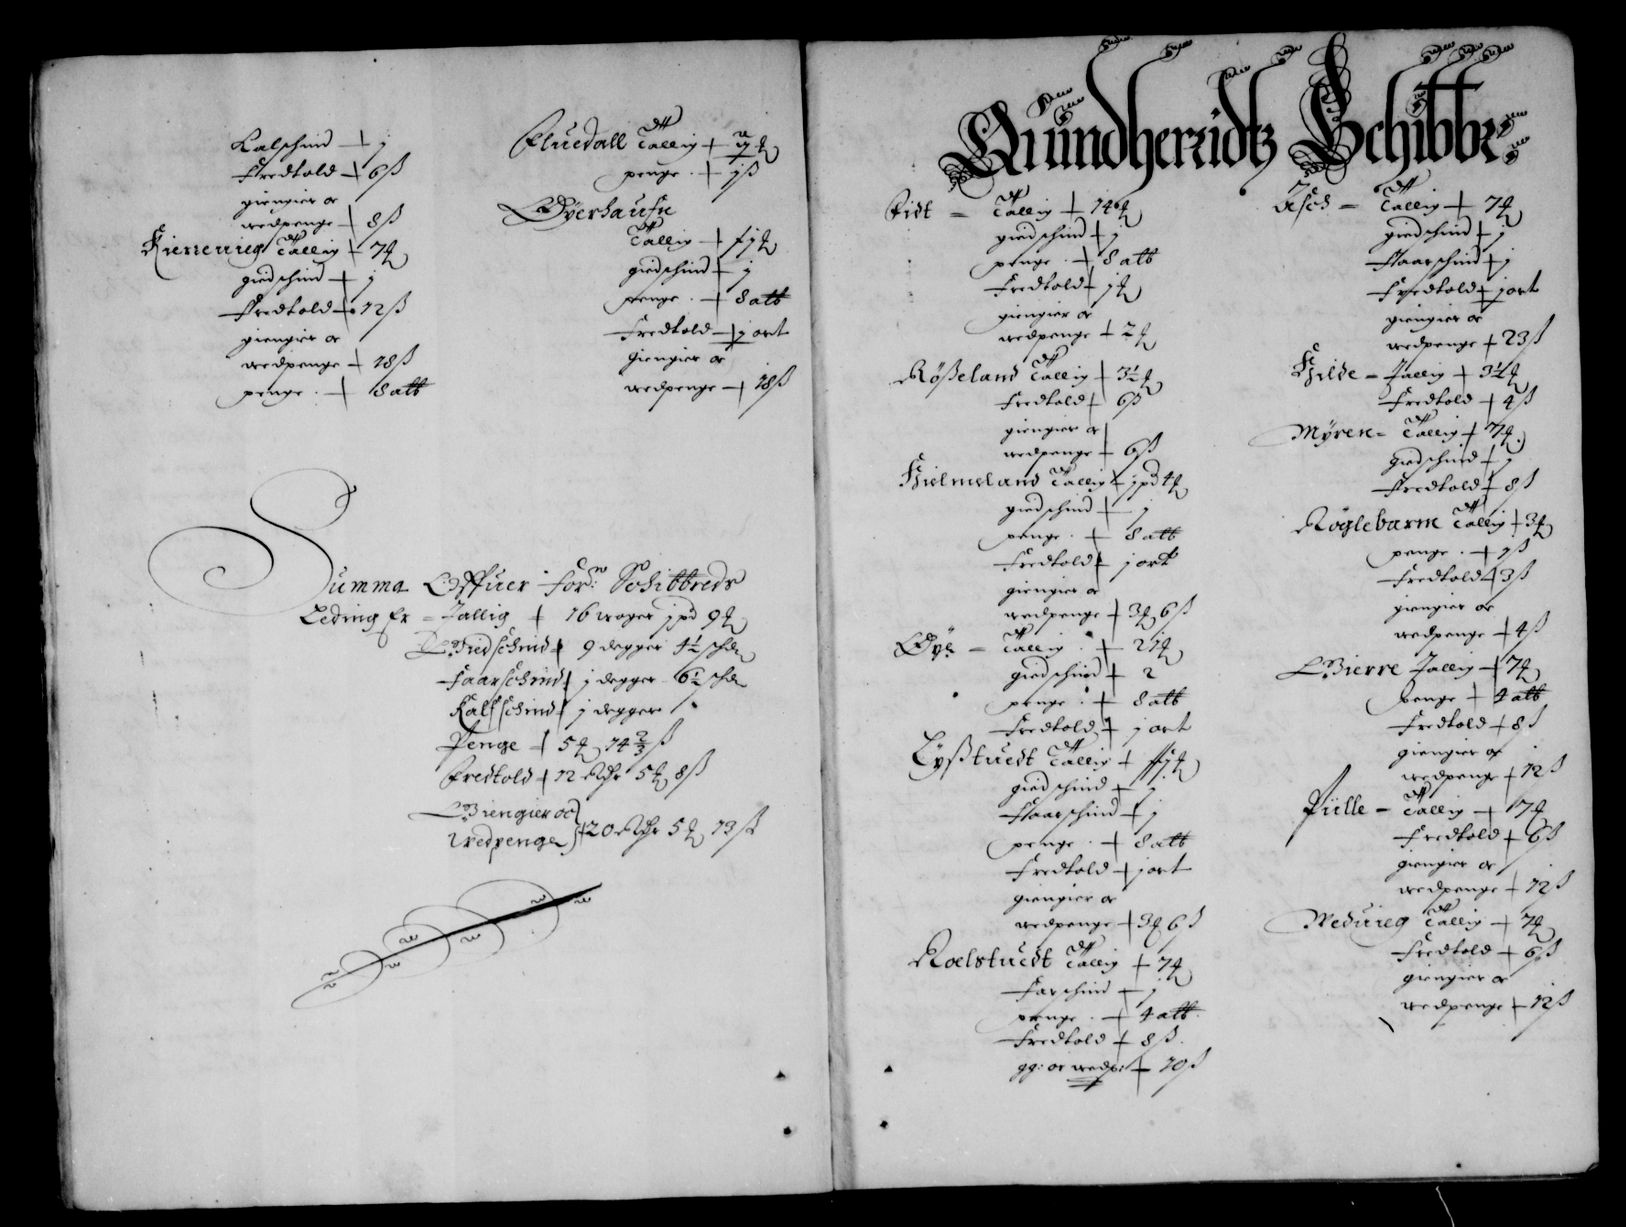 Kalschind + j
Fredtold + 6 ß
giengier oc
wedpenge + 8 ß
Kierreuieg Tallig + 7
giedschind + j
Fredtold + 12 ß
giengier oc
wedpenge + 18 ß
penge + 8 alb
Eluedall Tallig +
penge + j ß
Øyerhaufn
Tallig +
giedschind + j
penge + 8 alb
Fredtold + j ort
Giengier oc
wedpenge + 18 ß
Summa Offuer forn: Schibbreds
Leding Er = Tallig + 16 woger j pd 9
Giedschind + 9 degger 4½ schin
Faarschind + j degger 6½ schin
Kalfschind + j degger
Penge + 5 14 2/3 ß
Fredtold + 12 Rdr 5 8 ß
Giengier oc
Wedpenge + 20 Rdr 5 13 ß
Quindherridtz Schibbr:
Eidt = Tallig + 14
giedschind + j
penge + 8 alb
Fredtold + j
giengier oc
wedpenge + 2
Rößeland Tallig + 3½
Fredtold + 6 ß
giengier oc
wedpenge + 6 ß
Hielmeland Tallig + j pd 4
giedschind + j
penge + 8 alb
Fredtold + j ort
giengier oc
wedpenge + 3 6 ß
Øye = Tallig + 21
giedschind + 2
penge + 8 alb
Fredtold + j ort
Lyßtuedt Tallig +
giedschind + j
Faarschind + j
penge + 8 alb
Fredtold + j ort
giengier oc
wedpenge + 3 6 ß
Roelstuedt Tallig + 7
Farschind + j
penge + 4 alb
Fredtold + 8 ß
gg: oc wedp: + 10 ß
Æsch = Tallig + 7
giedschind + j
Faarschind + j
Fredtold + j ort
giengier oc
wedpenge + 23 ß
Hilde = Tallig + 3½
Fredtold + 4 ß
Myren = Tallig + 7
giedschind + j
Fredtold + 8 ß
Røglebarm Tallig + 3
penge + 1 ß
Fredtold + 3 ß
giengier oc
wedpenge + 4 ß
Gierre Tallig + 7
penge + 4 alb
Fredtold + 8 ß
giengier oc
wedpenge + 12 ß
Pülle = Tallig + 7
Fredtold + 6 ß
giengier oc
wedpenge + 12 ß
Weduieg Tallig + 7
Fredtold + 6 ß
giengier oc
wedpenge + 12 ß